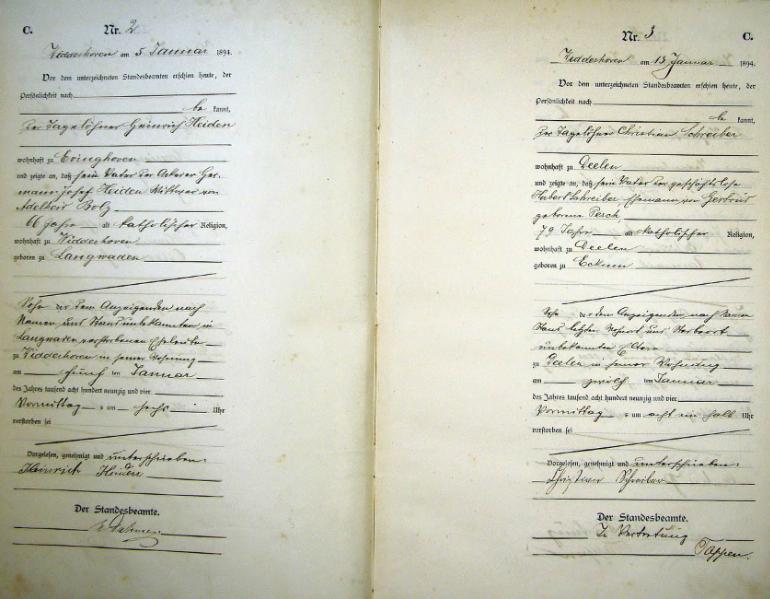 C.
Nr. 2
Widdeshoven am 5 Januar 1894.
Vor dem unterzeichneten Standesbeamten erschien heute, der
Persönlichkeit nach
be kannt,
Der Tagelöhner Heinrich Heiden
wohnhaft zu Evinghoven
und zeigte an, daß sein Vater der Ackerer Her-
mann Josef Heiden Wittwer von
Adelheid Bolz
66 Jahre alt katholischer Religion,
wohnhaft zu Widdeshoven
geboren zu Langwaden
Sohn der dem Anzeigenden nach
Namen und Stand unbekannten in
Langwaden verstorbenen Eheleute
zu Widdeshoven in seiner Wohnung
am fünf ten Januar
des Jahres tausend acht hundert neunzig und vier
Vormittag s um sechs Uhr
verstorben sei
Vorgelesen, genehmigt und unterschrieben:
Heinrich Heiden
Der Standesbeamte.
Nr. 3
C.
Widdeshoven am 13 Januar 1894.
Vor dem unterzeichneten Standesbeamten erschien heute, der
Persönlichkeit nach
be kannt,
Der Tagelöhner Christian Schreiber
wohnhaft zu Deelen
und zeigte an, daß sein Vater der geschäftslose
Hubert Schreiber, Ehemann von Gertrud
geborene Pesch,
79 Jahre alt katholischer Religion,
wohnhaft zu Deelen
geboren zu Eckum
Sohn der dem Anzeigenden nach Namen
Stand letzten Wohnort und Sterbeort
unbekannten Eltern
zu Deelen in seiner Wohnung
am zwölf ten Januar
des Jahres tausend acht hundert neunzig und vier
Vormittag s um acht ein halb Uhr
verstorben sei
Vorgelesen, genehmigt und unterschrieben:
Christian Schreiber
Der Standesbeamte.
In Vertretung
Tappen.